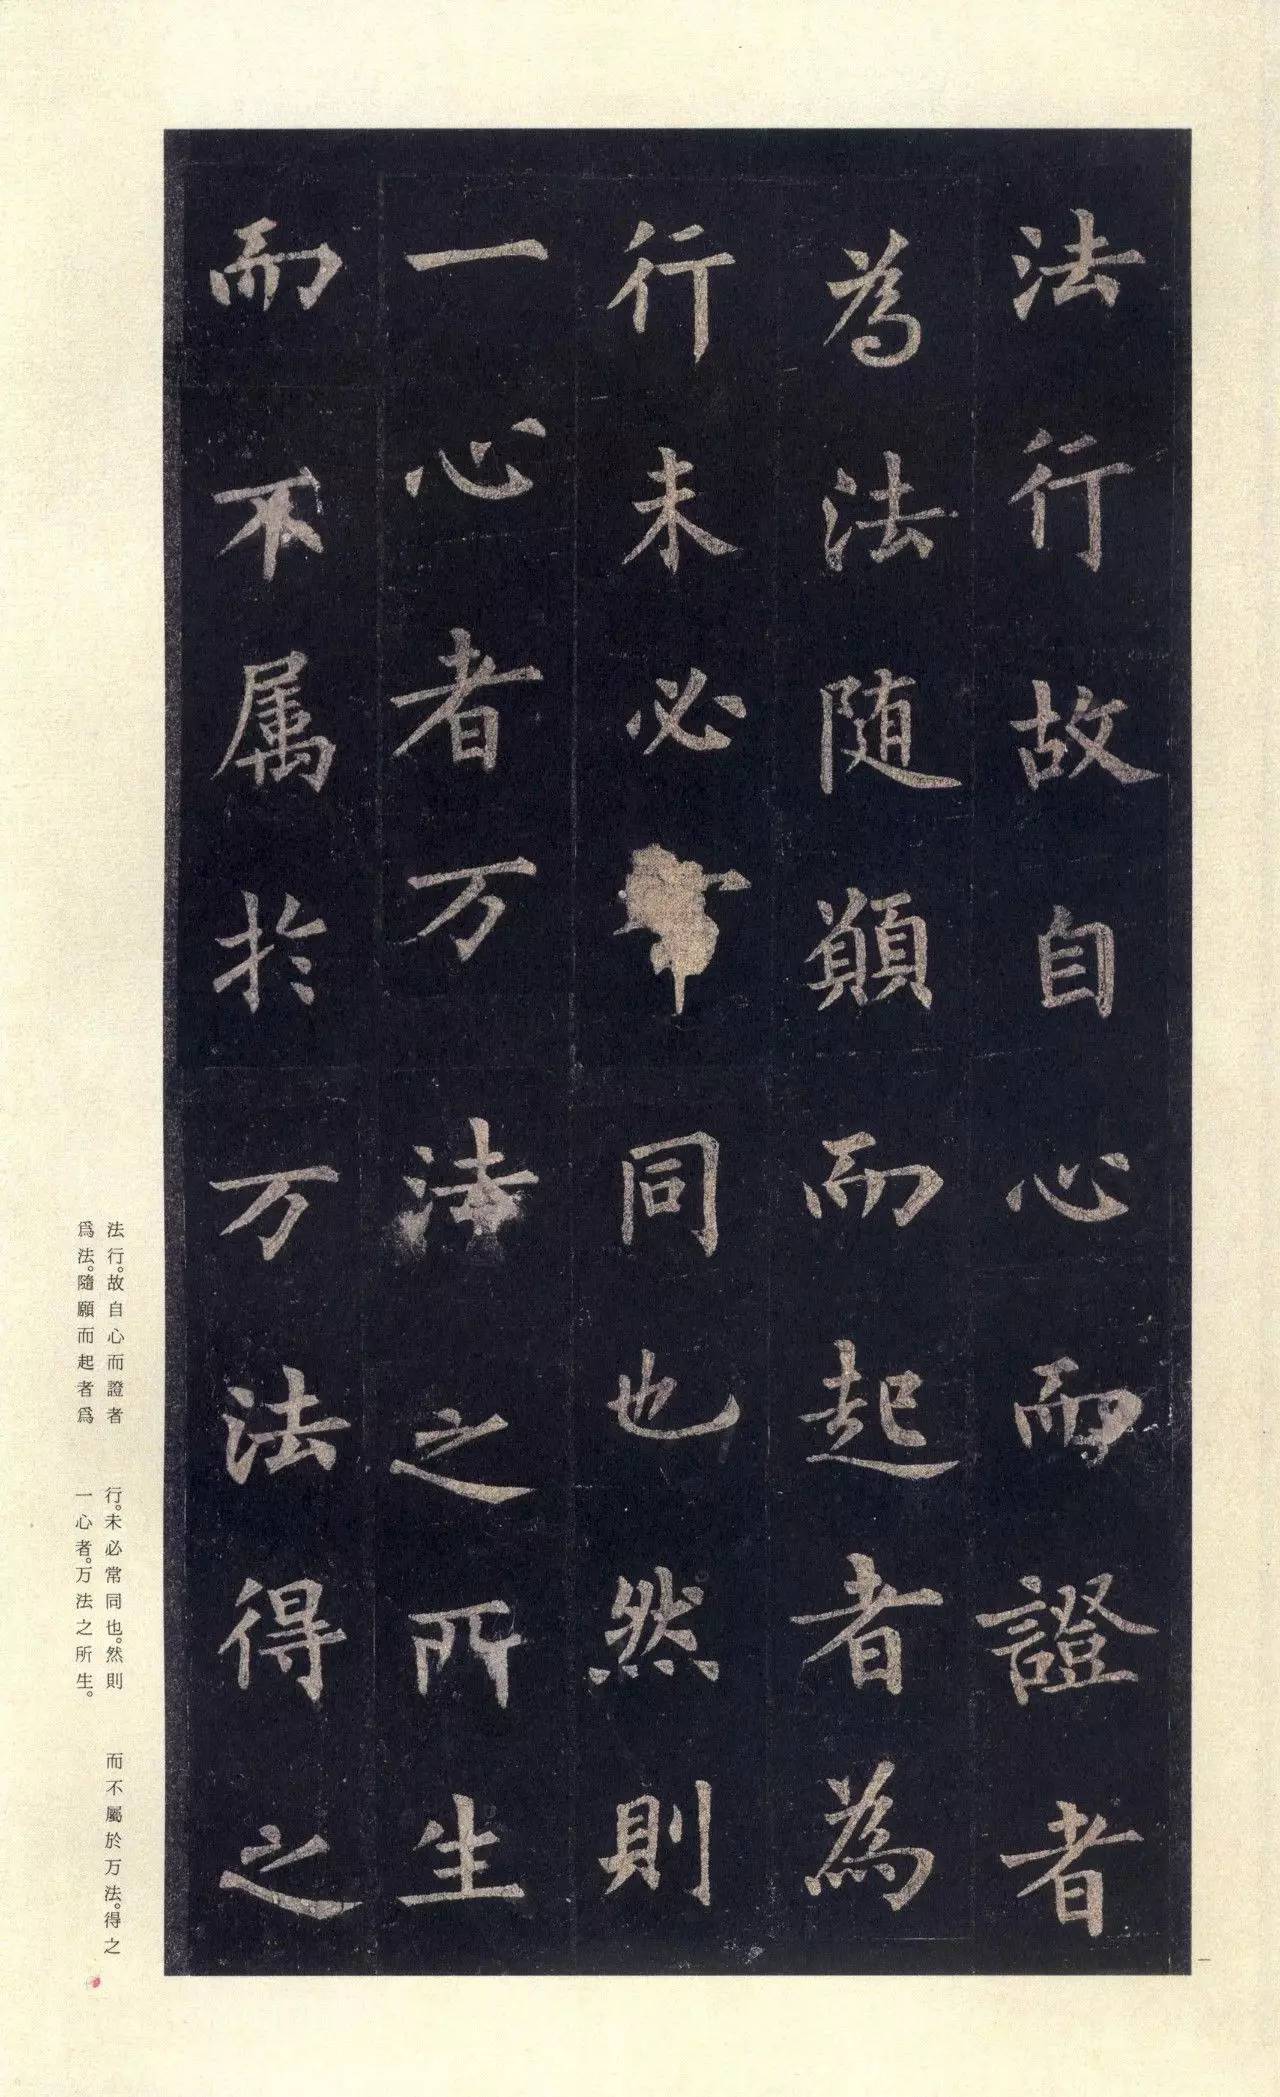 法行故自心而證者
為法随願而起者為
行未必常同也然則
一心者万法之所生
而不属於万法得之
法行。故自心而證者
爲法。隨願而起者爲
行。未必常同也。然則
一心者。万法之所生。
而不屬於万法。得之
一